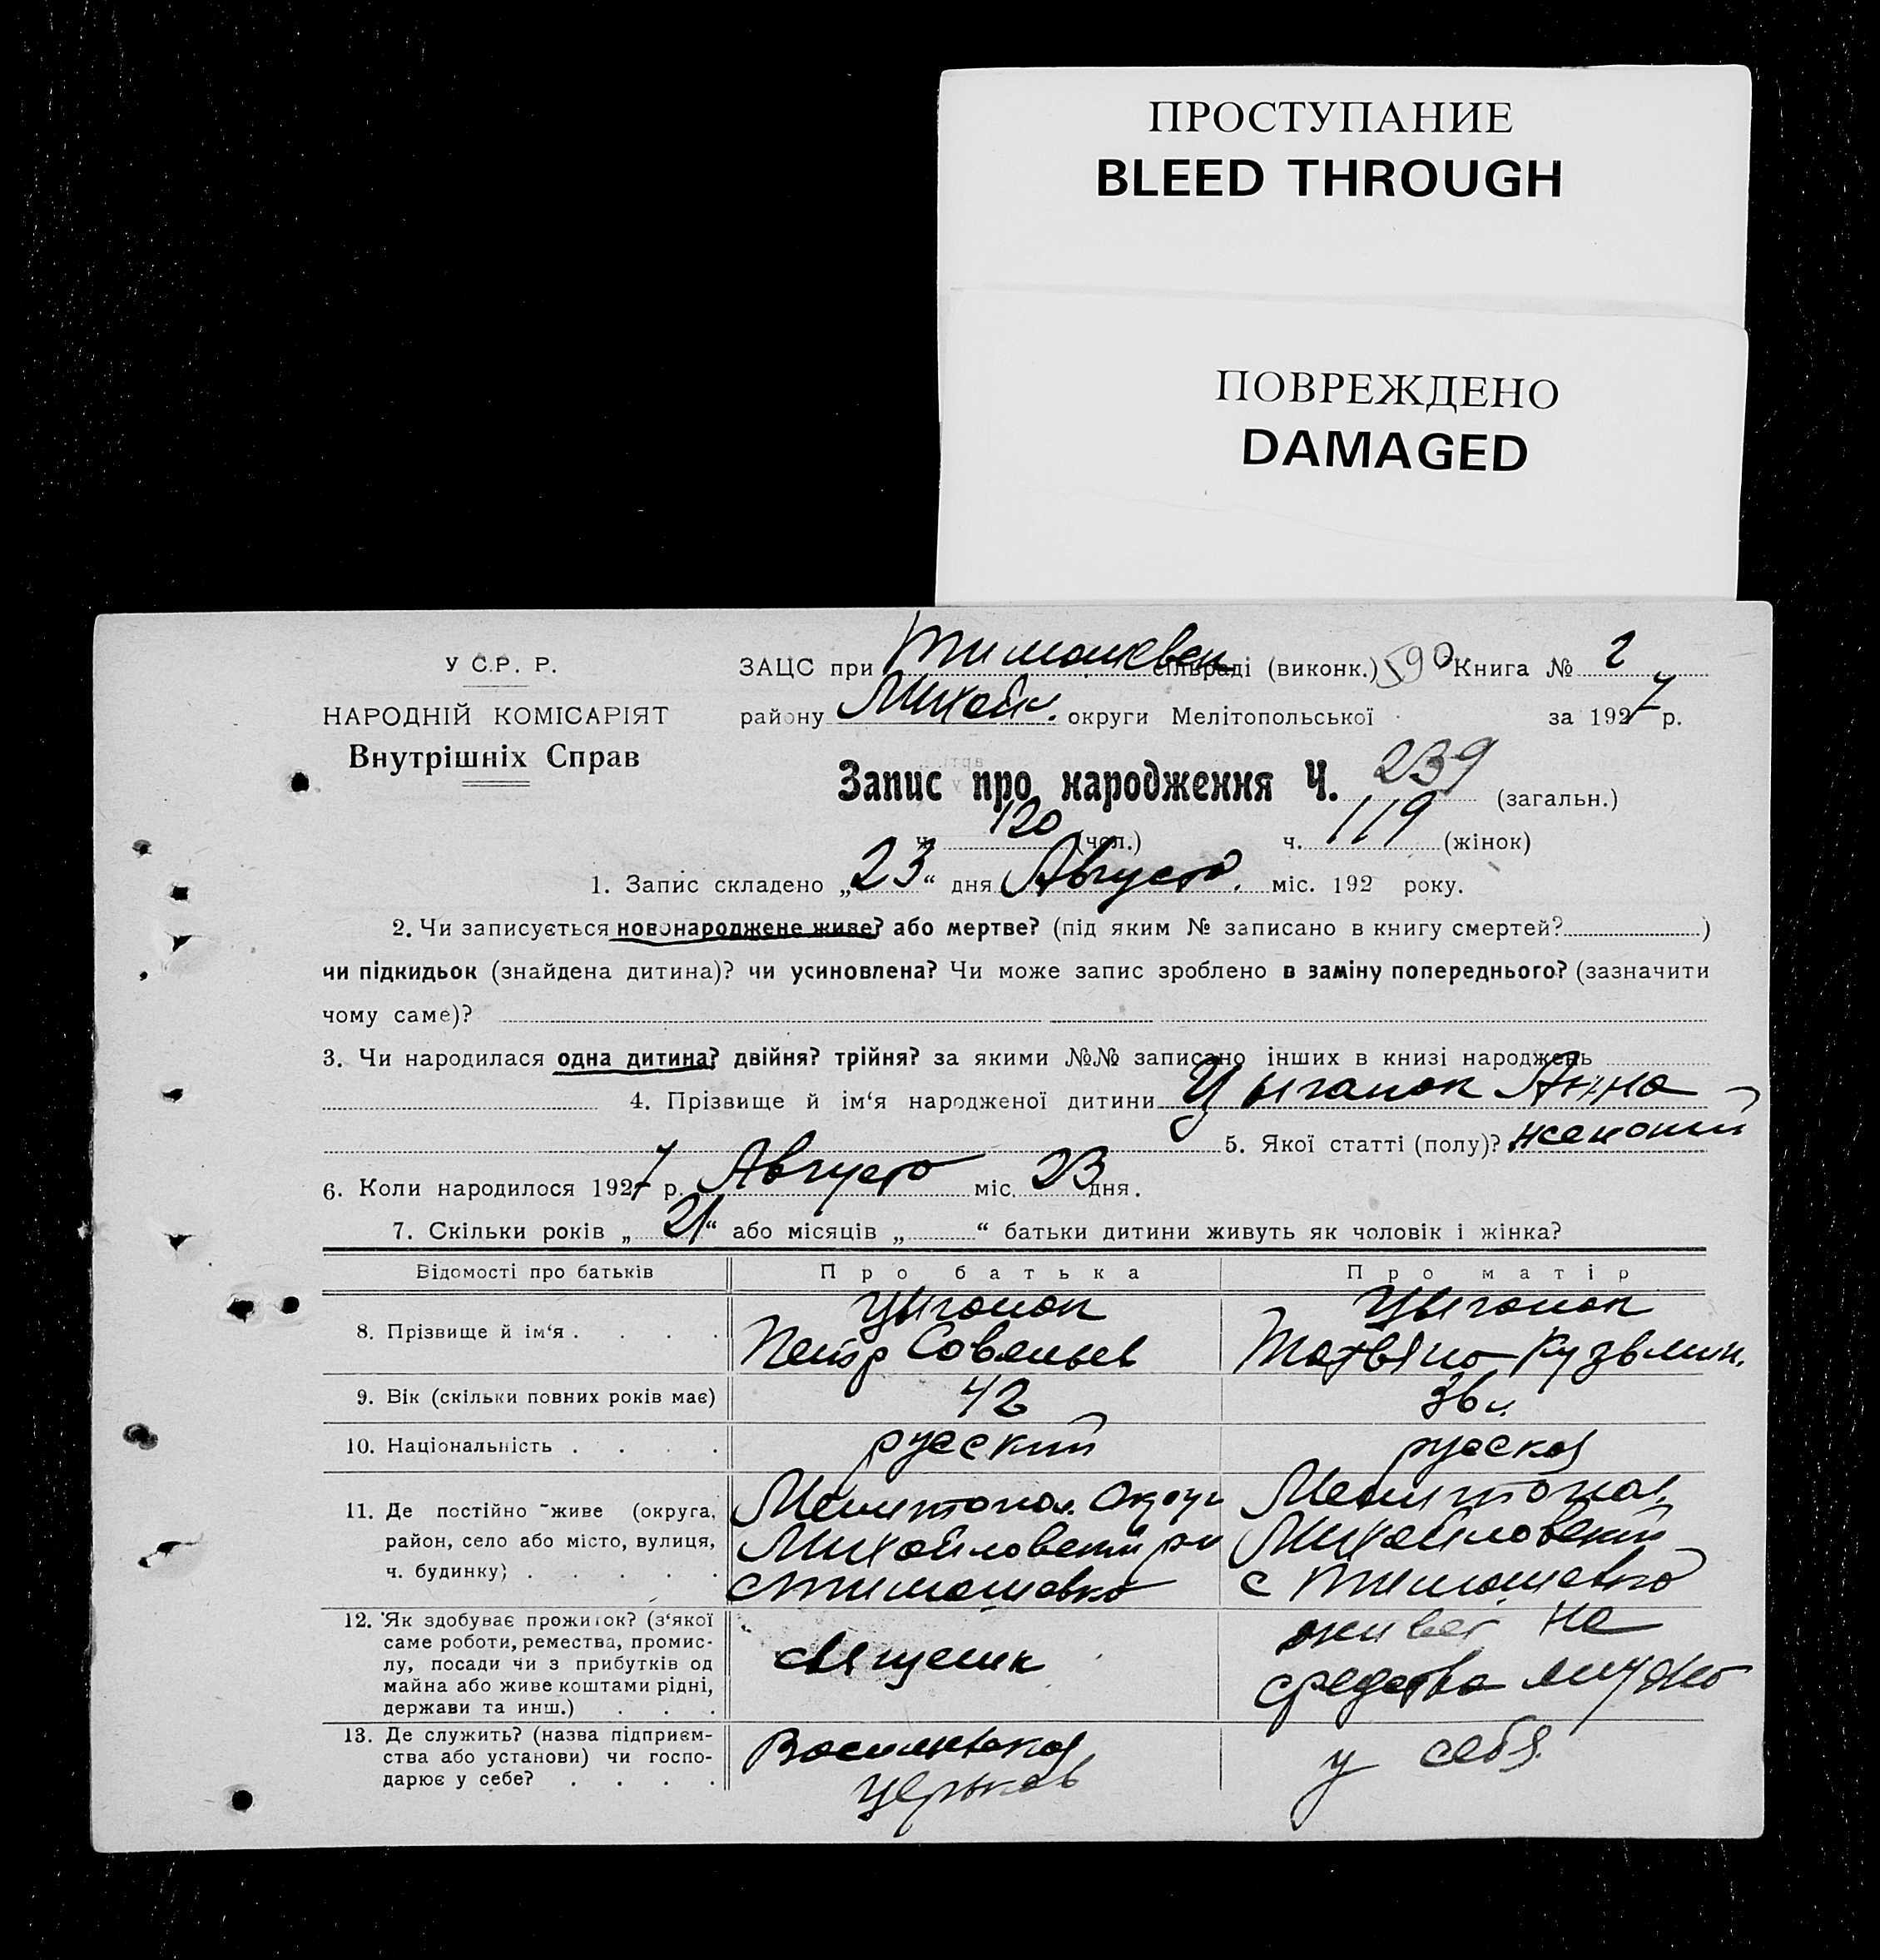 ПРОСТУПАНИЕ
BLEED THROUGH
ПОВРЕЖДЕНО
DAMAGED
У С.Р. Р.
НАРОДНІЙ КОМІСАРІЯТ
Внутрішніх Справ
ЗАЦС при Тимошевск сільраді (виконк.) 590 Книга № 2
району Михайл. округи Мелітопольської за 1927 р.
Запис про народження Ч. 239 (загальн.)
ч. 120 (чол.) ч. 119 (жінок)
1. Запис складено „23“ дня Августа. міс. 192 року.
2. Чи записується новонароджене живе? або мертве? (під яким № записано в книгу смертей? )
чи підкидьок (знайдена дитина)? чи усиновлена? Чи може запис зроблено в заміну попереднього? (зазначити
чому саме)?
3. Чи народилася одна дитина? двійня? трійня? за якими №№ записано інших в книзі народжень
4. Прізвище й ім‘я народженої дитини Цыганок Анна
5. Якої статті (полу)? женский
6. Коли народилося 1927 р. Августа міс. 23 дня.
7. Скільки років „21“ або місяців „ “ батьки дитини живуть як чоловік і жінка?
Відомості про батьків Про батька Про матір
8. Прізвище й ім‘я . . . . Цыганок Петр Савельев Цыганок Татьяна Кузьмин.
9. Вік (скільки повних років має) 42 36 л
10. Національність . . . . русский русская
11. Де постійно живе (округа, Мелитопол. Округ Мелитопол.
район, село або місто, вулиця, Михайловский р-н Михайловский
ч. будинку) . . . . . с Тимошевка с Тимошевка
12. Як здобуває прожиток? (з‘якої живет на
саме роботи, ремества, промис-
лу, посади чи з прибутків од священик средства мужа
майна або живе коштами рідні,
держави та инш.) . . .
13. Де служить? (назва підприєм-
ства або установи) чи госпо- у себя
дарює у себе? . . . . церковь